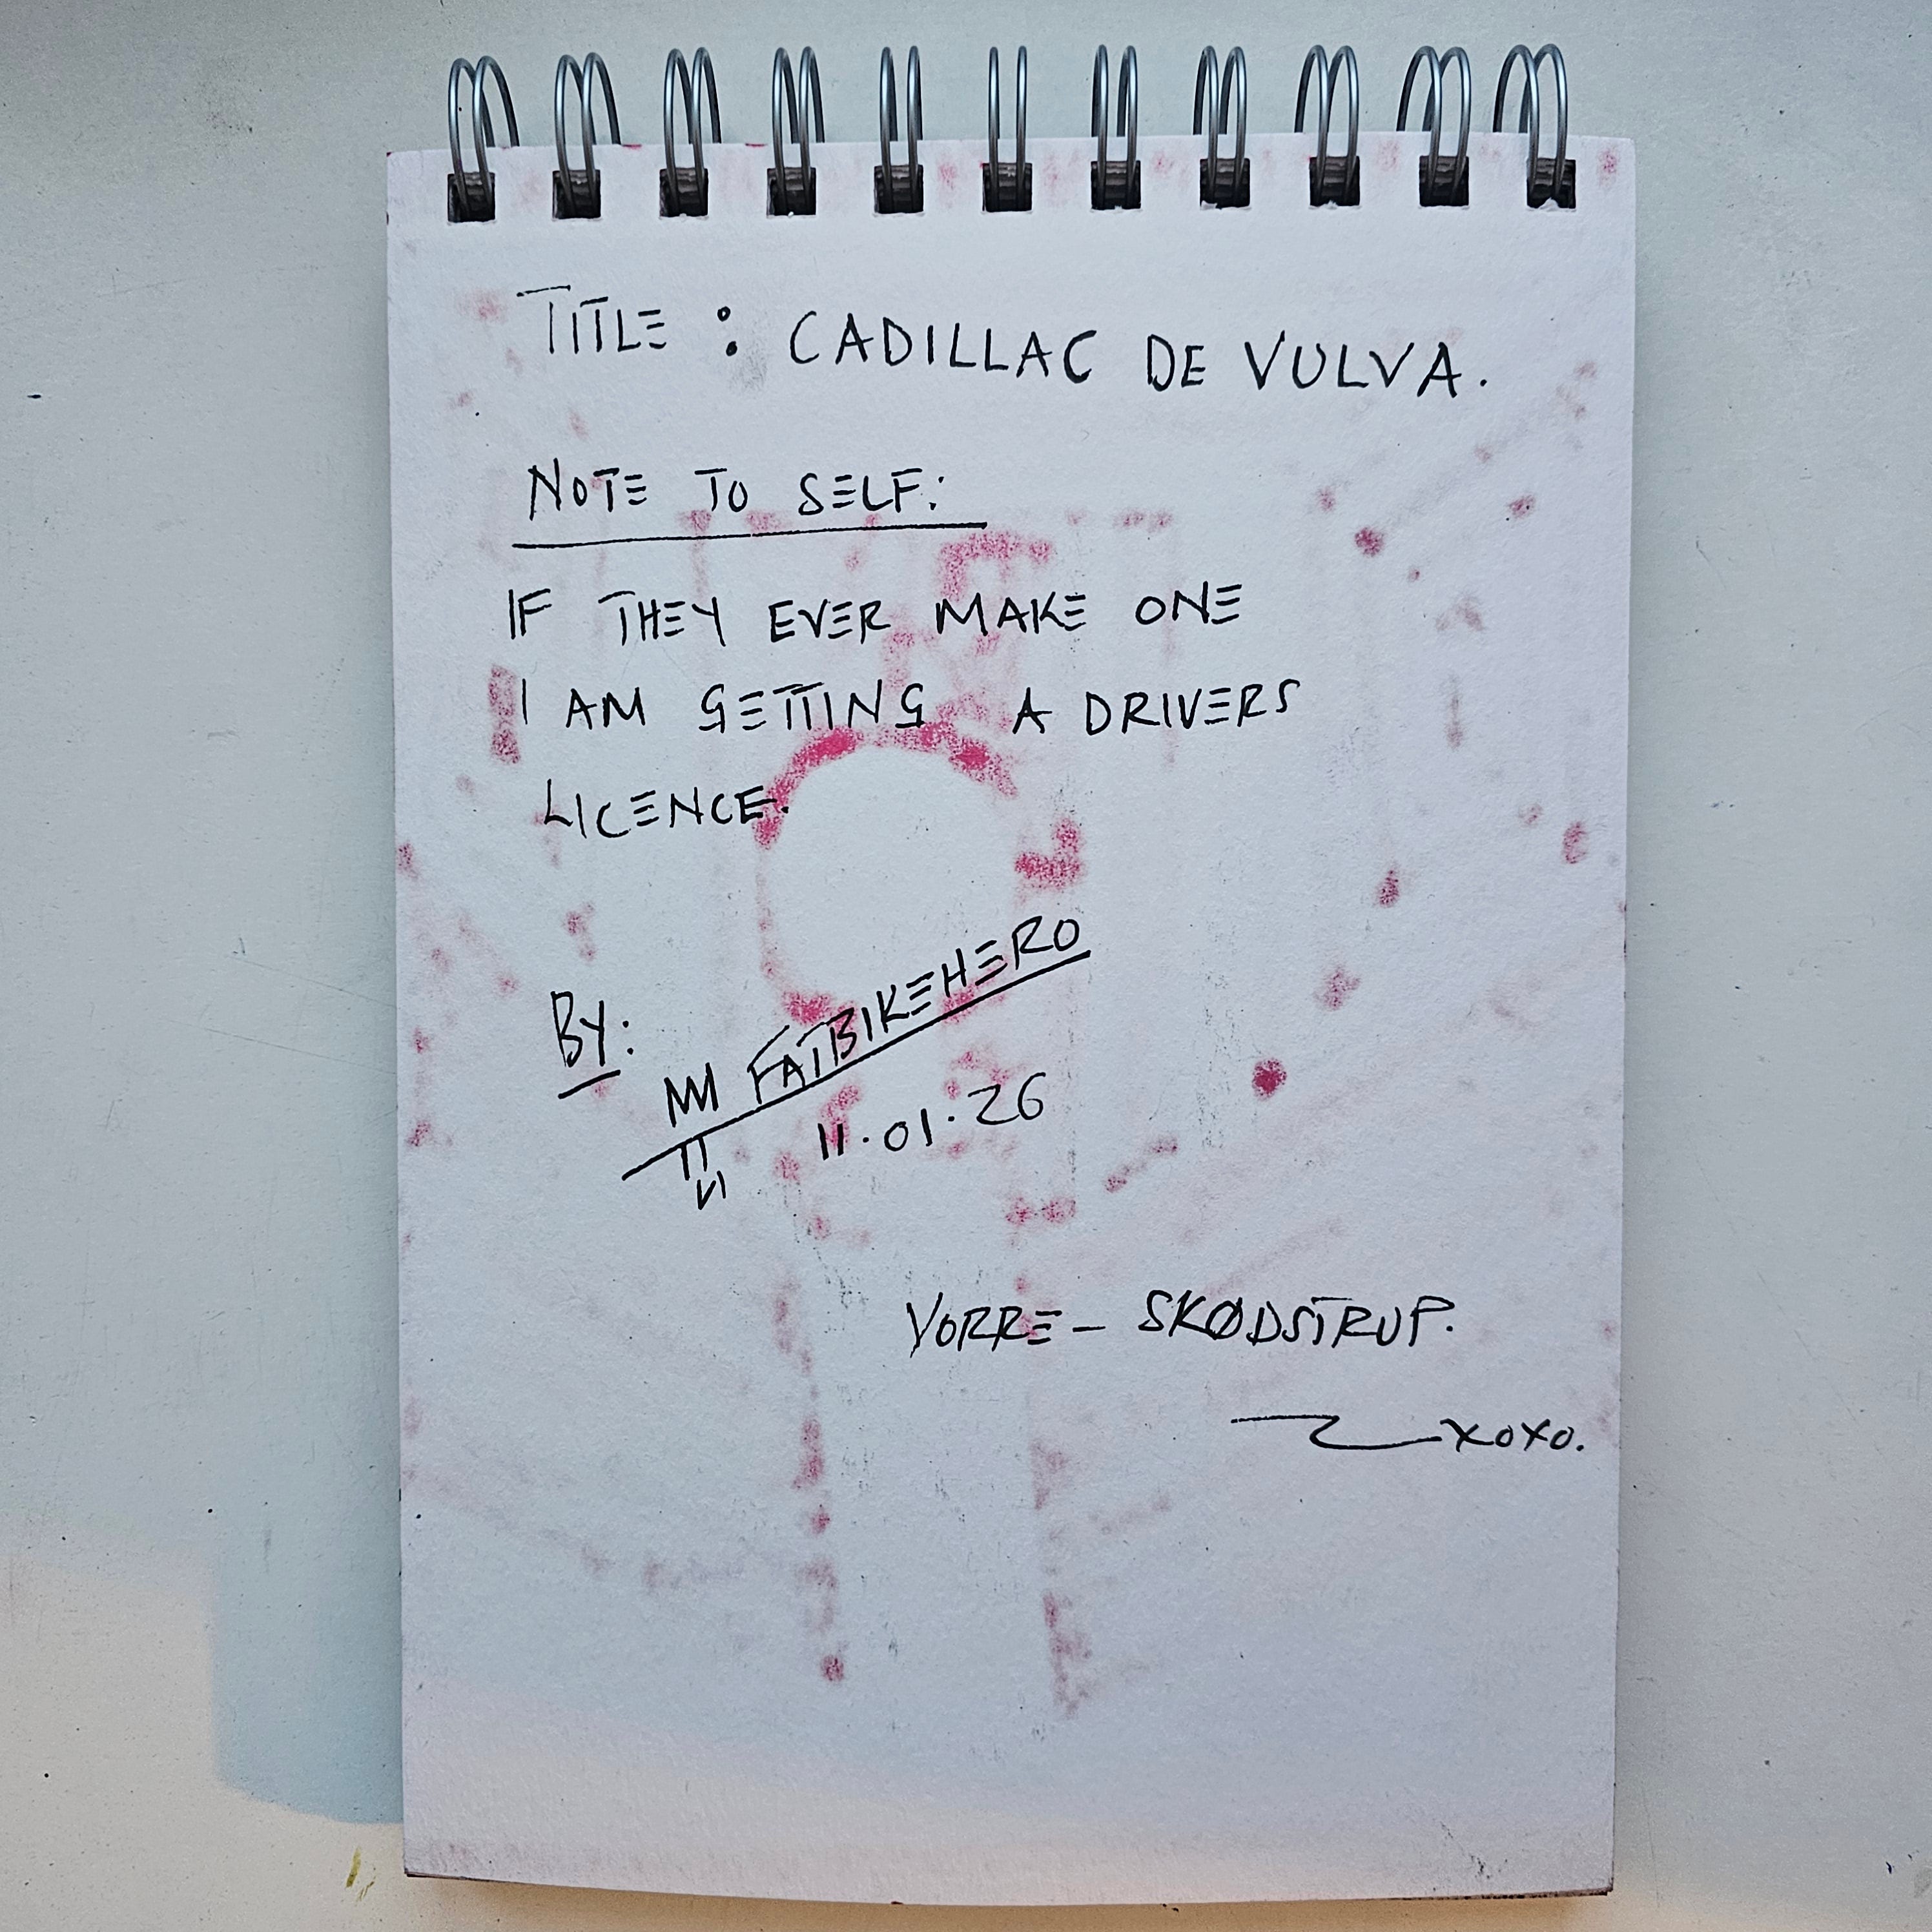 TITLE : CADILLAC DE VULVA.
NOTE TO SELF:
IF THEY EVER MAKE ONE
I AM GETTING A DRIVERS
LICENCE.
BY:
FATBIKEHERO
11.01.26
VORRE - SKØDSTRUP.
XOXO.